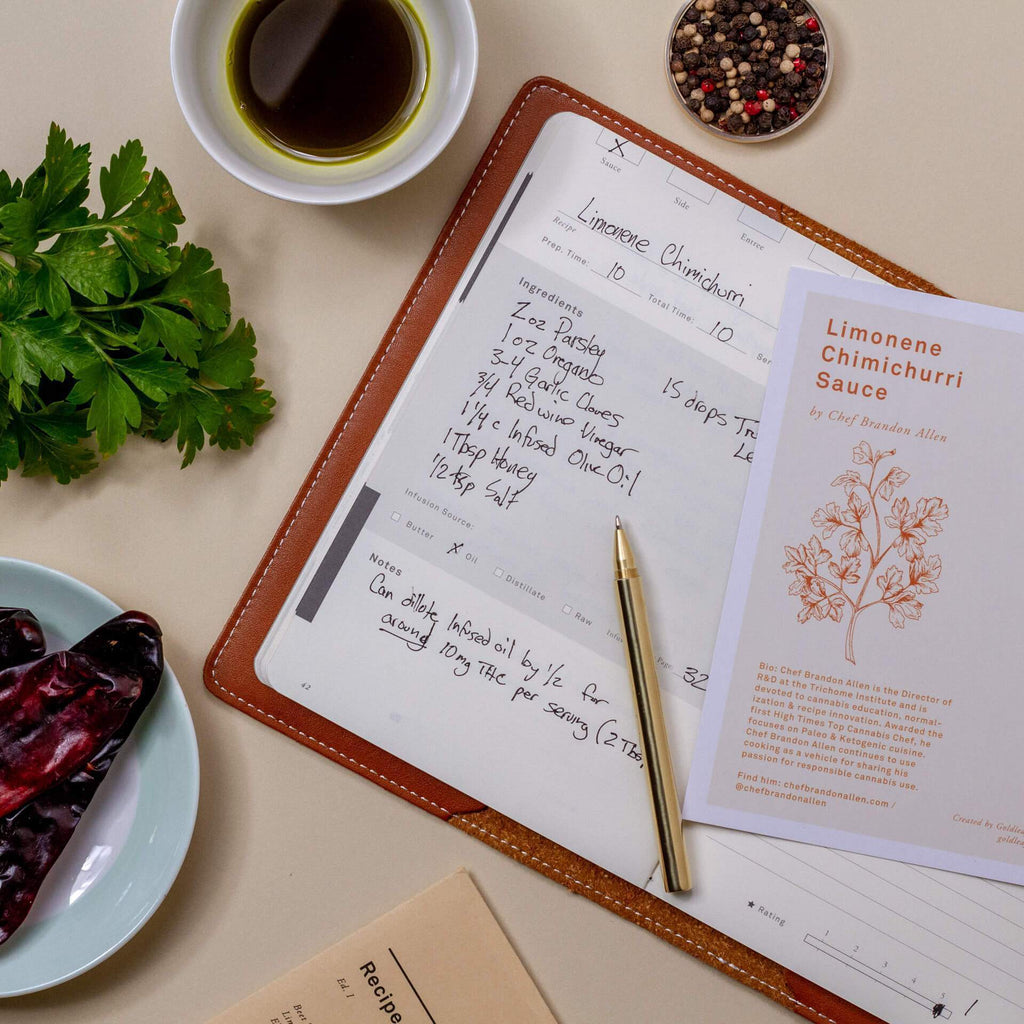 X
Sauce
Side
Entree
Recipe Limonene Chimichurri
Prep. Time: 10 Total Time: 10
Ingredients
2 oz Parsley
1 oz Oregano
3-4 Garlic Cloves
3/4 Red wine Vinegar
1 1/4 c Infused Olive Oil
1 Tbsp Honey
1/2 tsp Salt
15 drops
Infusion Source:
Butter X Oil Distillate Raw
Page: 32
Notes
Can dillute Infused oil by 1/2 for
around 10mg THC per serving (2 Tbs
42
Rating
1 2 3 4 5
Limonene
Chimichurri
Sauce
by Chef Brandon Allen
Bio: Chef Brandon Allen is the Director of
R&D at the Trichome Institute and is
devoted to cannabis education, normal-
ization & recipe innovation. Awarded the
first High Times Top Cannabis Chef, he
focuses on Paleo & Ketogenic cuisine.
Chef Brandon Allen continues to use
cooking as a vehicle for sharing his
passion for responsible cannabis use.
Find him: chefbrandonallen.com /
@chefbrandonallen
Created by
Recipe
Ed. 1